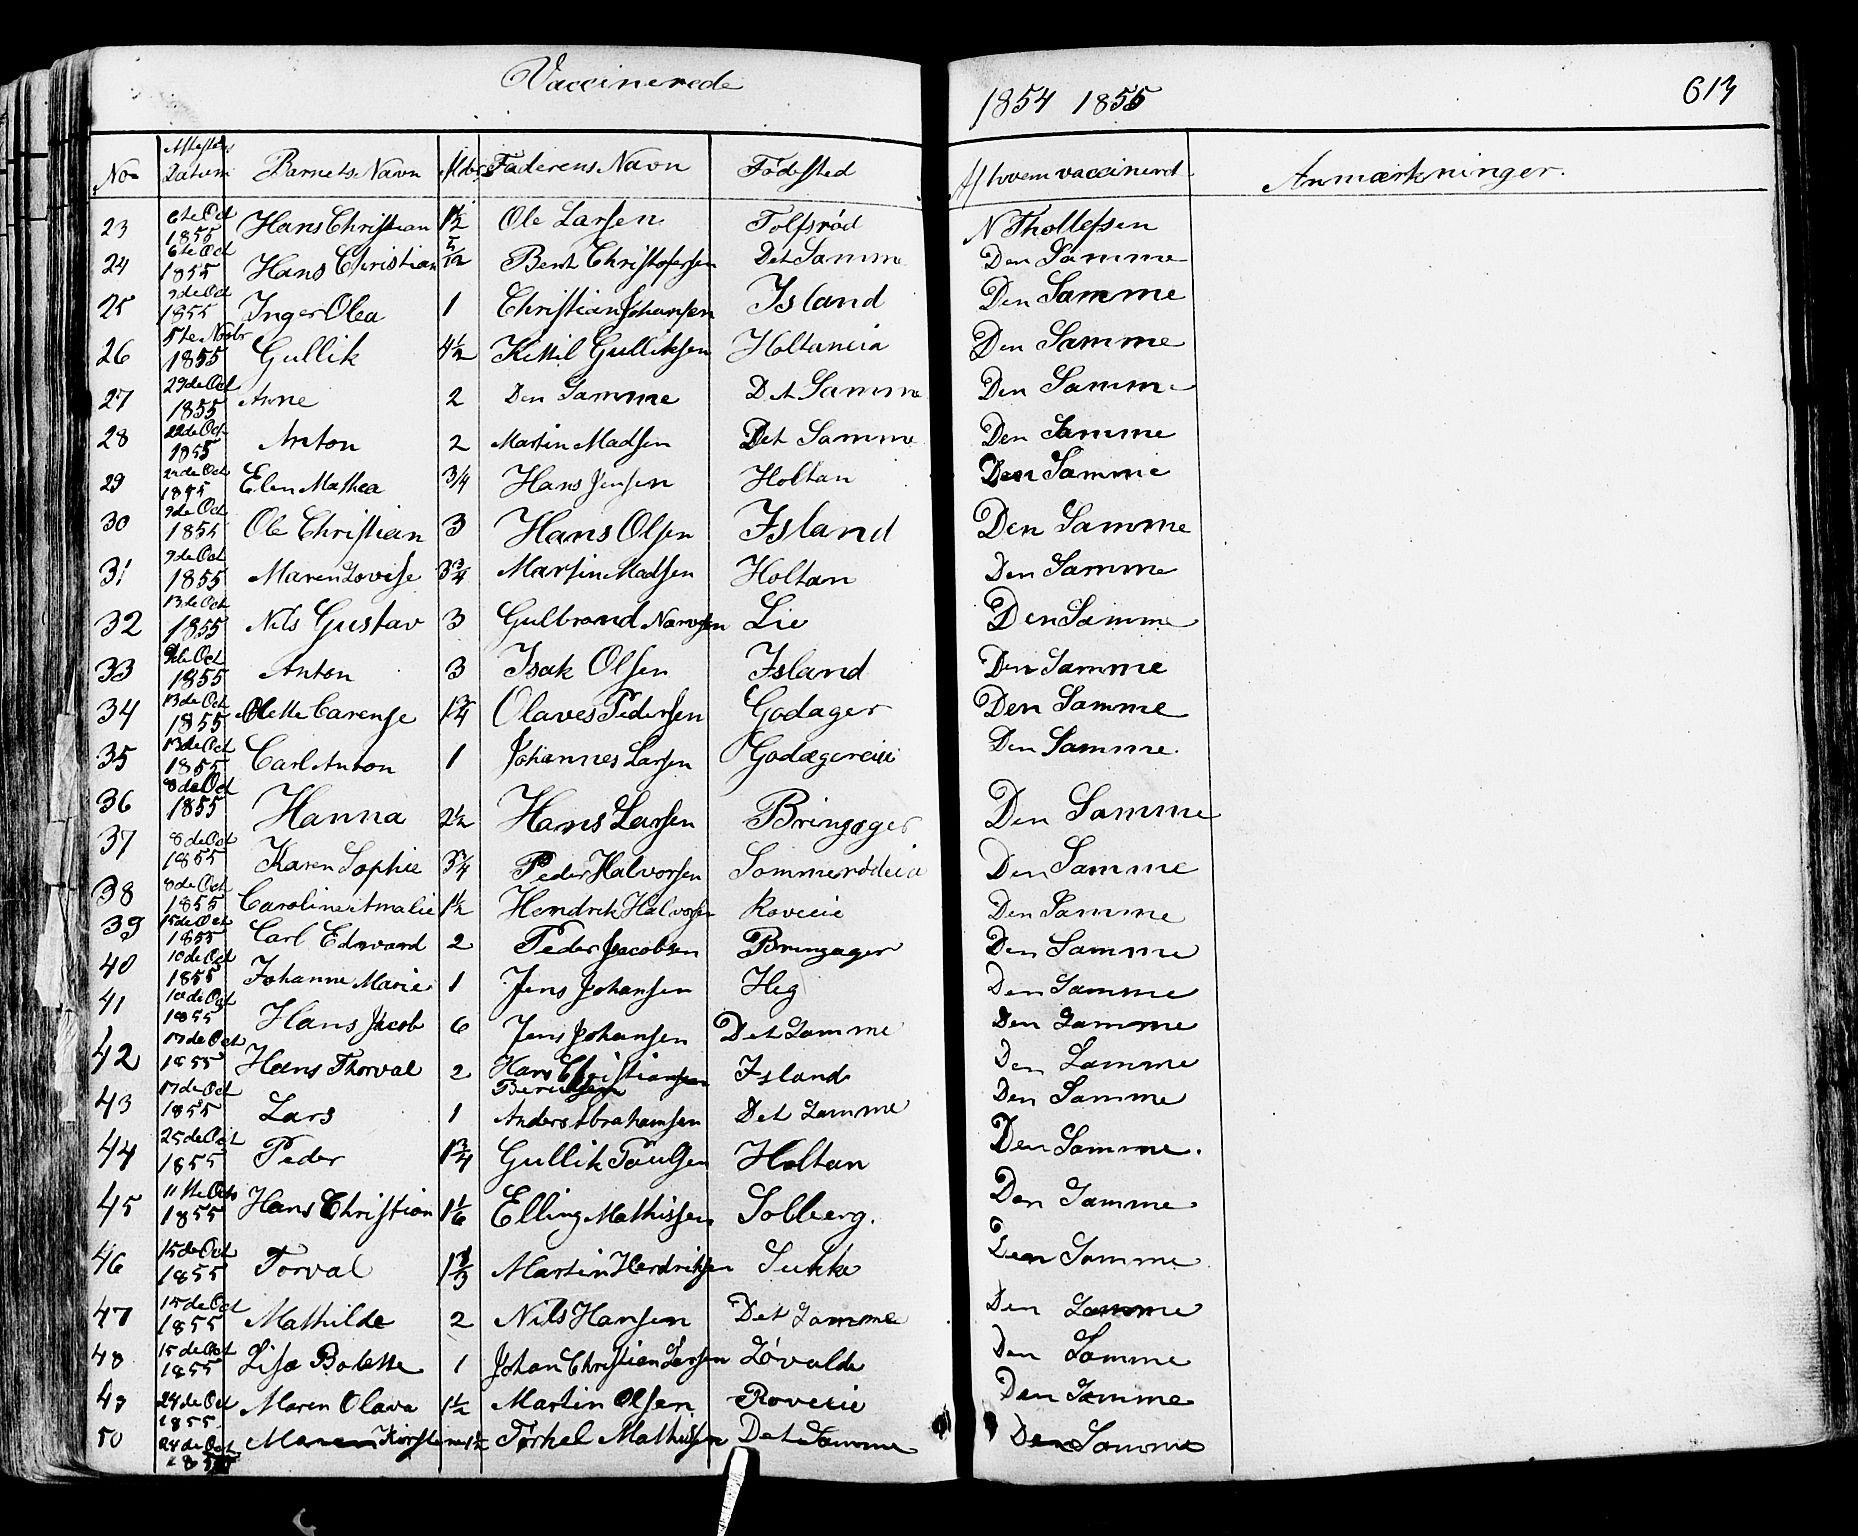 Vaccinerede 1854 1855 613
No Attestens Datum Barnets Navn Alder Faderens Navn Fødested Af hvem vaccinered. Anmærkninger.
23 6te Oct 1855 Hans Christian 1½ Ole Larsen Tolfsrød N Thollefsen
24 6te Oct 1855 Hans Christian 5/12 Bent Christofersen Det Samme Den Samme
25 9de Oct 1855 Inger Olea 1 Christian Johansen Island Den Samme
26 5te Novbr 1855 Gullik 4½ Kittil Gulliksen Holtaneia Den Samme
27 29de Oct 1855 Anne 2 Den Samme Det Samme Den Samme
28 22de Oct 1855 Anton 2 Martin Madsen Det Samme Den Samme
29 22de Oct 1855 Elen Mathea 3/4 Hans Jensen Holtan Den Samme
30 9de Oct 1855 Ole Christian 3 Hans Olsen Island Den Samme
31 9de Oct 1855 Maren Lovise 3¾ Martin Madsen Holtan Den Samme
32 13de Oct 1855 Nils Gustav 3 Gulbrand Lie Den Samme
33 Oct 1855 Anton 3 Isak Olsen Island Den Samme
34 13de Oct 1855 Carense 1¾ Olaves Pedersen Godager Den Samme
35 13de Oct 1855 Carl Anton 1 Johannes Larsen Godagereie Den Samme.
36 8de Oct 1855 Hanna 2½ Hans Larsen Bringager Den Samme
37 8de Oct 1855 Karen Sophie 3¾ Peder Halvorsen Sommerødeia Den Samme
38 8de Oct 1855 Caroline Amalie 1½ Hendrik Halvorsen Roveeie Den Samme
39 15de Oct 1855 Carl Edward 2 Peder Jacobsen Bringager Den Samme
40 10de Oct 1855 Johanne Marie 1 Jens Johansen Heg Den Samme
41 10de Oct 1855 Hans Jacob 6 Jens Johansen Det Samme Den Samme
42 17de Oct 1855 Hans Thorval 2 Hans Christiansen Berntsen Island Den Samme
43 17de Oct 1855 Lars 1 Anders Abrahamsen Det Samme Den Samme
44 25de Oct 1855 Peder 1¾ Gullik Paulsen Holtan Den Samme.
45 11te Octo 1855 Hans Christian 1 1/6 Elling Mathissen Solberg. Den Samme
46 15de Oct 1855 Torval 1 Martin Hendriksen Sukke Den Samme
47 15de Oct 1855 Mathilde 2 Nils Hansen Det Samme Den Samme
48 15de Oct 1855 Lisa Bolette 1 Johan Christian Larsen Løvalde Den Samme
49 24de Oct 1855 Maren Olava 1½ Martin Olsen Roveeie Den Samme
50 24de Oct 1855 Maren Kirstine 1½ Torkel Mathisen Det Samme Den Samme